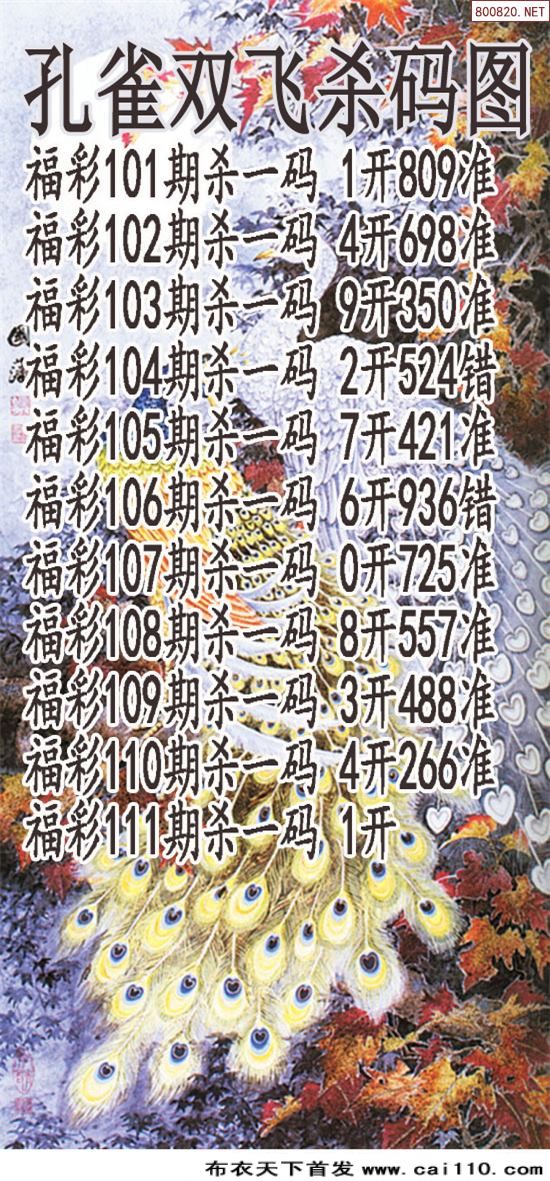 800820.NET
孔雀双飞杀码图
福彩101期杀一码 1开809准
福彩102期杀一码 4开698准
福彩103期杀一码 9开350准
福彩104期杀一码 2开524错
福彩105期杀一码 7开421准
福彩106期杀一码 6开936错
福彩107期杀一码 0开725准
福彩108期杀一码 8开557准
福彩109期杀一码 3开488准
福彩110期杀一码 4开266准
福彩111期杀一码 1开
布衣天下首发 www.cai110.com